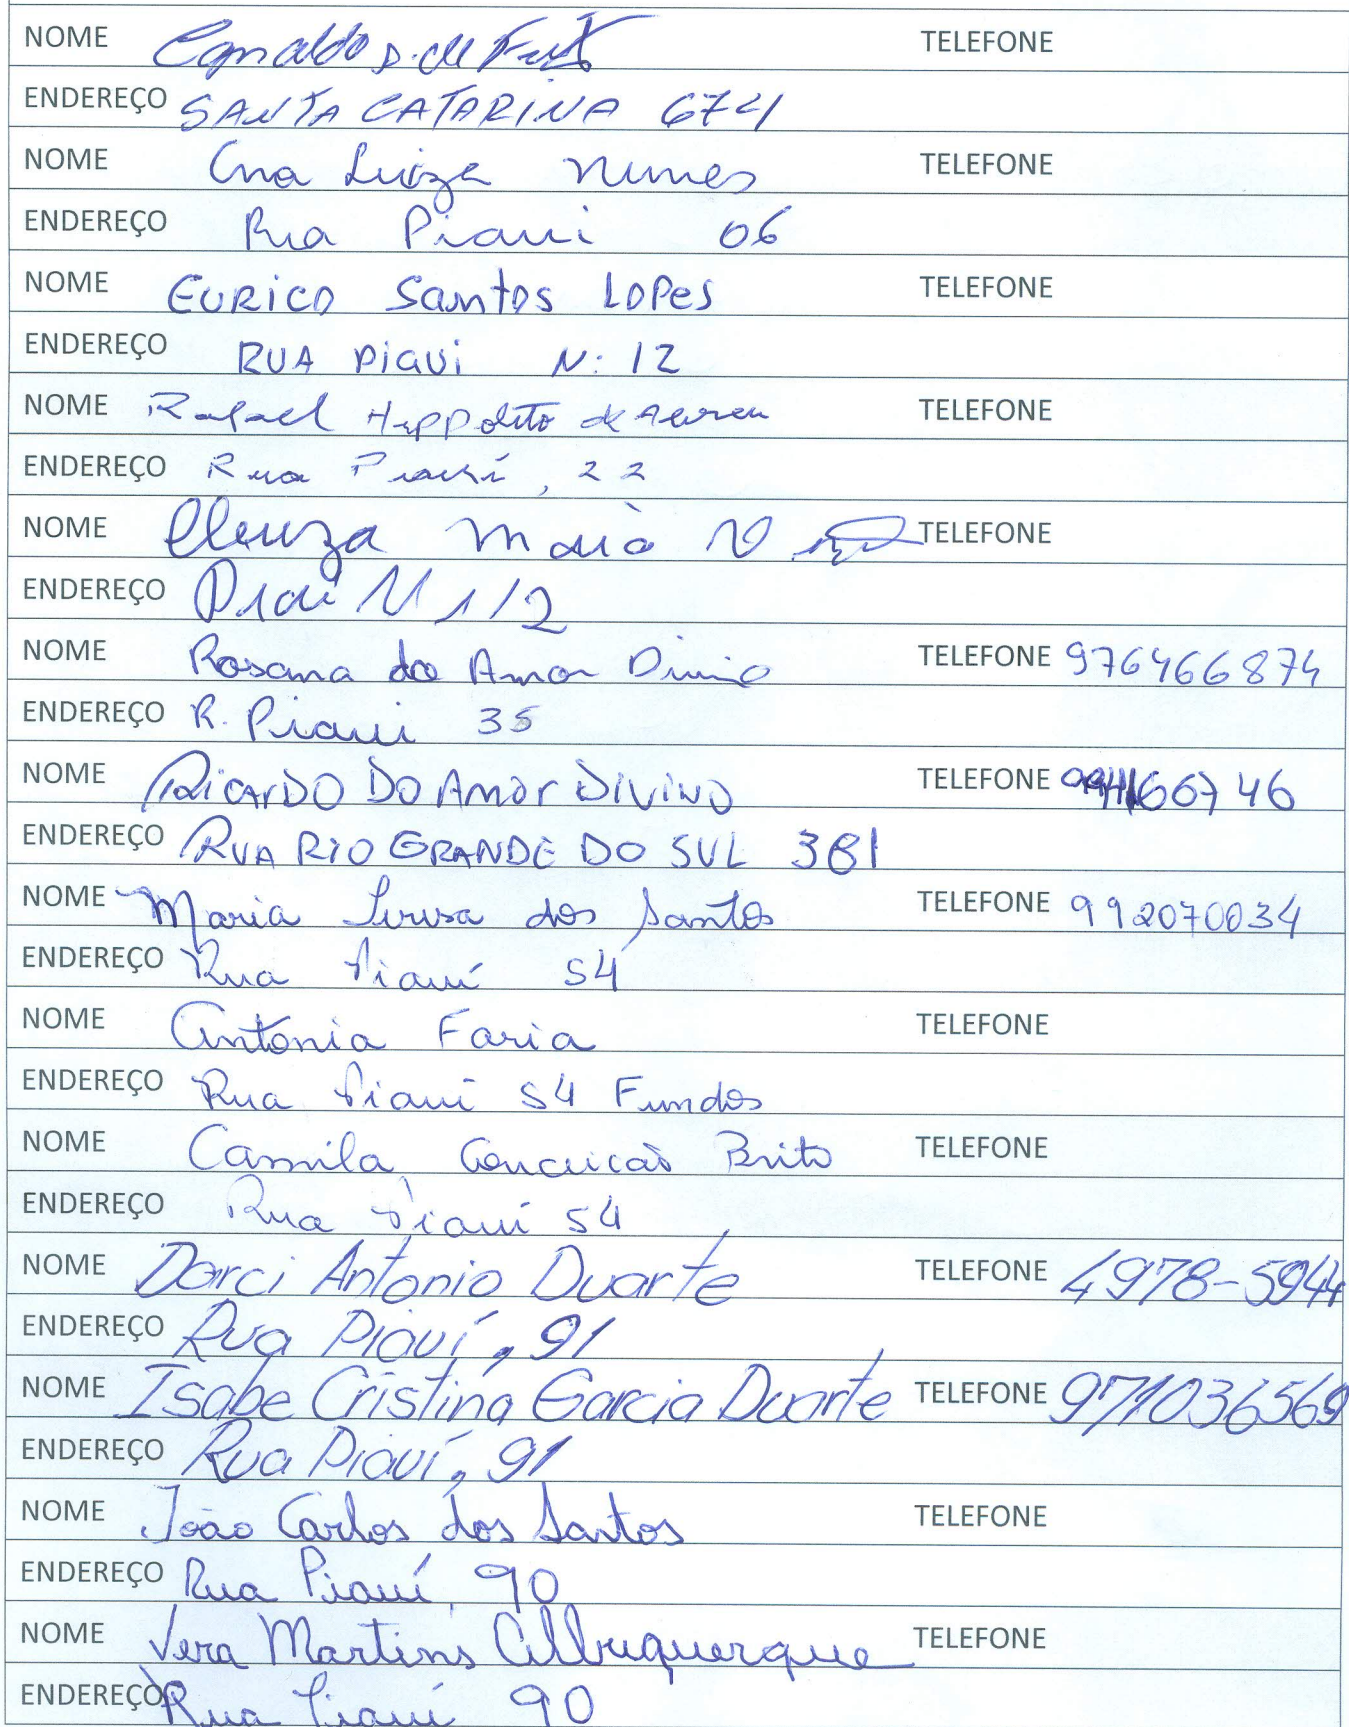 NOME TELEFONE
ENDEREÇO SANTA CATARINA 674
NOME Ana Luiza Nunes TELEFONE
ENDEREÇO Rua Piaui 06
NOME EURICO Santos LOPES TELEFONE
ENDEREÇO RUA PIAUI N: 12
NOME Rafael Hippolito de Abreu TELEFONE
ENDEREÇO Rua Piauí, 22
NOME Cleuza Maria TELEFONE
ENDEREÇO
NOME Rosana do Amor Divino TELEFONE 976466874
ENDEREÇO R. Piaui 35
NOME RICARDO DO AMOR DIVINO TELEFONE
ENDEREÇO RUA RIO GRANDE DO SUL 381
NOME Maria Luisa dos Santos TELEFONE 992070034
ENDEREÇO Rua Piauí 54
NOME Antônia Faria TELEFONE
ENDEREÇO Rua Piaui 54 Fundos
NOME Camila Conceicão Brito TELEFONE
ENDEREÇO Rua Piaui 54
NOME Darci Antonio Duarte TELEFONE 4978-5944
ENDEREÇO Rua Piauí, 91
NOME Isabe Cristina Garcia Duarte TELEFONE 971036569
ENDEREÇO Rua Piauí, 91
NOME João Carlos dos Santos TELEFONE
ENDEREÇO Rua Piauí, 90
NOME Vera Martins Albuquerque TELEFONE
ENDEREÇO Rua Piauí 90